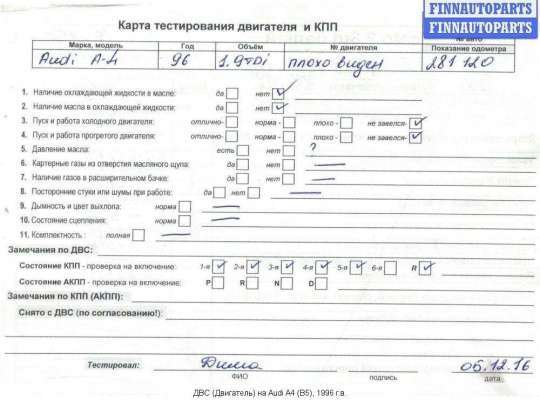 FINNAUTOPARTS
FINNAUTOPARTS
Карта тестирования двигателя и КПП
Марка, модель Год Объём № двигателя Показание одометра
Audi A-4 96 1.9TDi плохо виден 281 120
1. Наличие охлаждающей жидкости в масле: да нет
2. Наличие масла в охлаждающей жидкости: да нет
3. Пуск и работа холодного двигателя: отлично- норма - плохо - не завелся-
4. Пуск и работа прогретого двигателя: отлично- норма - плохо - не завелся-
5. Давление масла: есть нет ?
6. Картерные газы из отверстия масляного щупа: да нет
7. Наличие газов в расширительном бачке: да нет
8. Посторонние стуки или шумы при работе: да нет
9. Дымность и цвет выхлопа: норма
10. Состояние сцепления: норма
11. Комплектность: полная
Замечания по ДВС:
Состояние КПП - проверка на включение: 1-я 2-я 3-я 4-я 5-я 6-я R
Состояние АКПП - проверка на включение: P R N D
Замечания по КПП (АКПП):
Снято с ДВС (по согласованию!):
Тестировал: Дима 05.12.16
ФИО подпись дата
ДВС (Двигатель) на Audi A4 (B5), 1996 г.в.